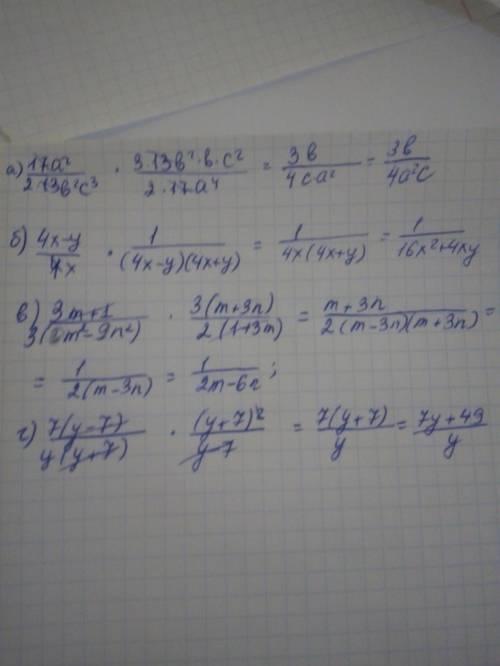 а) 17a²/2·13в²c³ · 3·13в²·в·c²/2·17a⁴ = 3в/4ca² = 3в/4a²c
б) 4x-y/4x · 1/(4x-y)(4x+y) = 1/4x(4x+y) = 1/16x²+4xy
в) 3m+1/3(m²-9n²) · 3(m+3n)/2(1+3m) = m+3n/2(m-3n)(m+3n) =
= 1/2(m-3n) = 1/2m-6n ;
г) 7(y-7)/y(y+7) · (y+7)²/y-7 = 7(y+7)/y = 7y+49/y